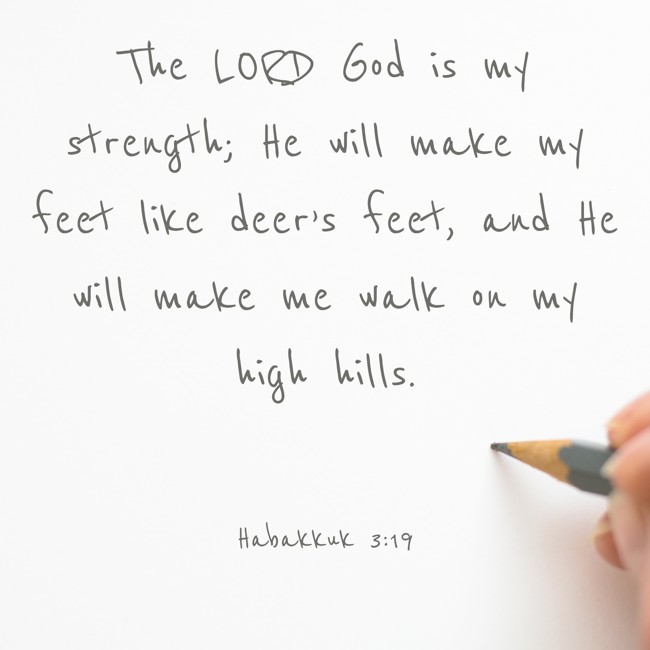 The LORD God is my
strength; He will make my
feet like deer's feet, and He
will make me walk on my
high hills.
Habakkuk 3:19